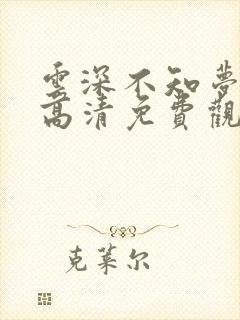 雲深不知夢
高清免費觀
克萊尔